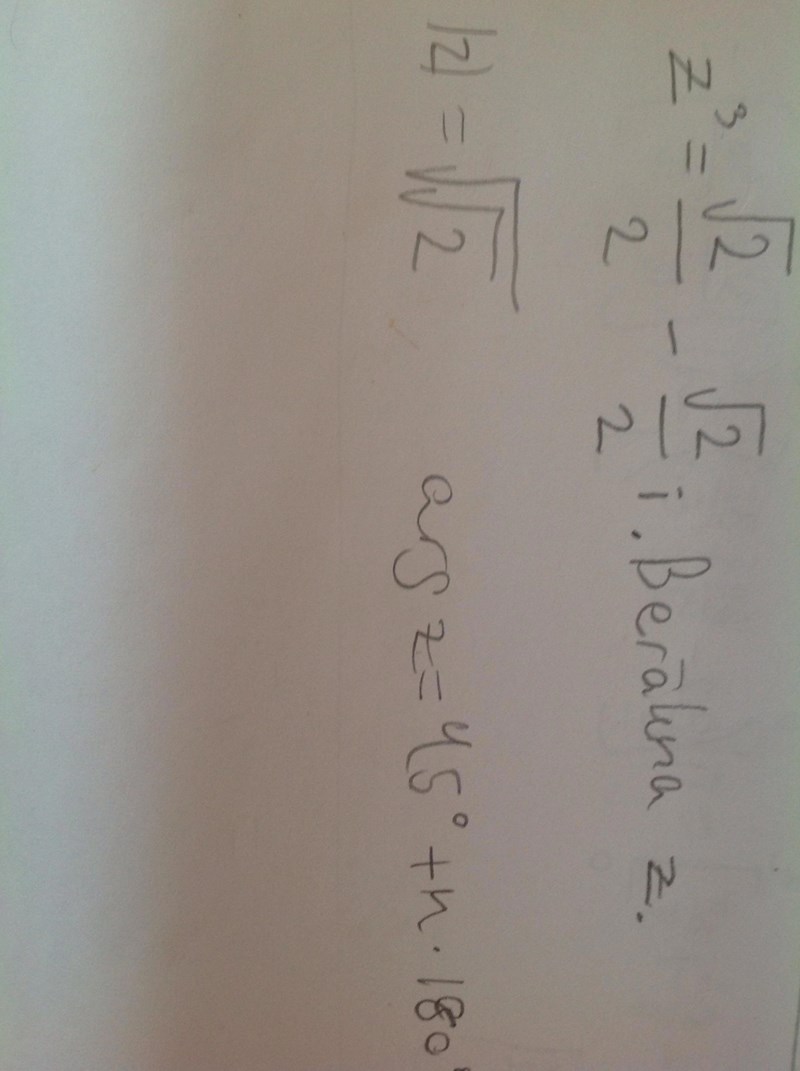 z³ = √2/2 - √2/2 i. Beräkna z.
|z| = √√2 arg z = 45° + n · 180°